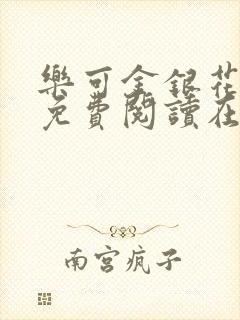 樂可金銀花
免費閱讀在
南宮疯子